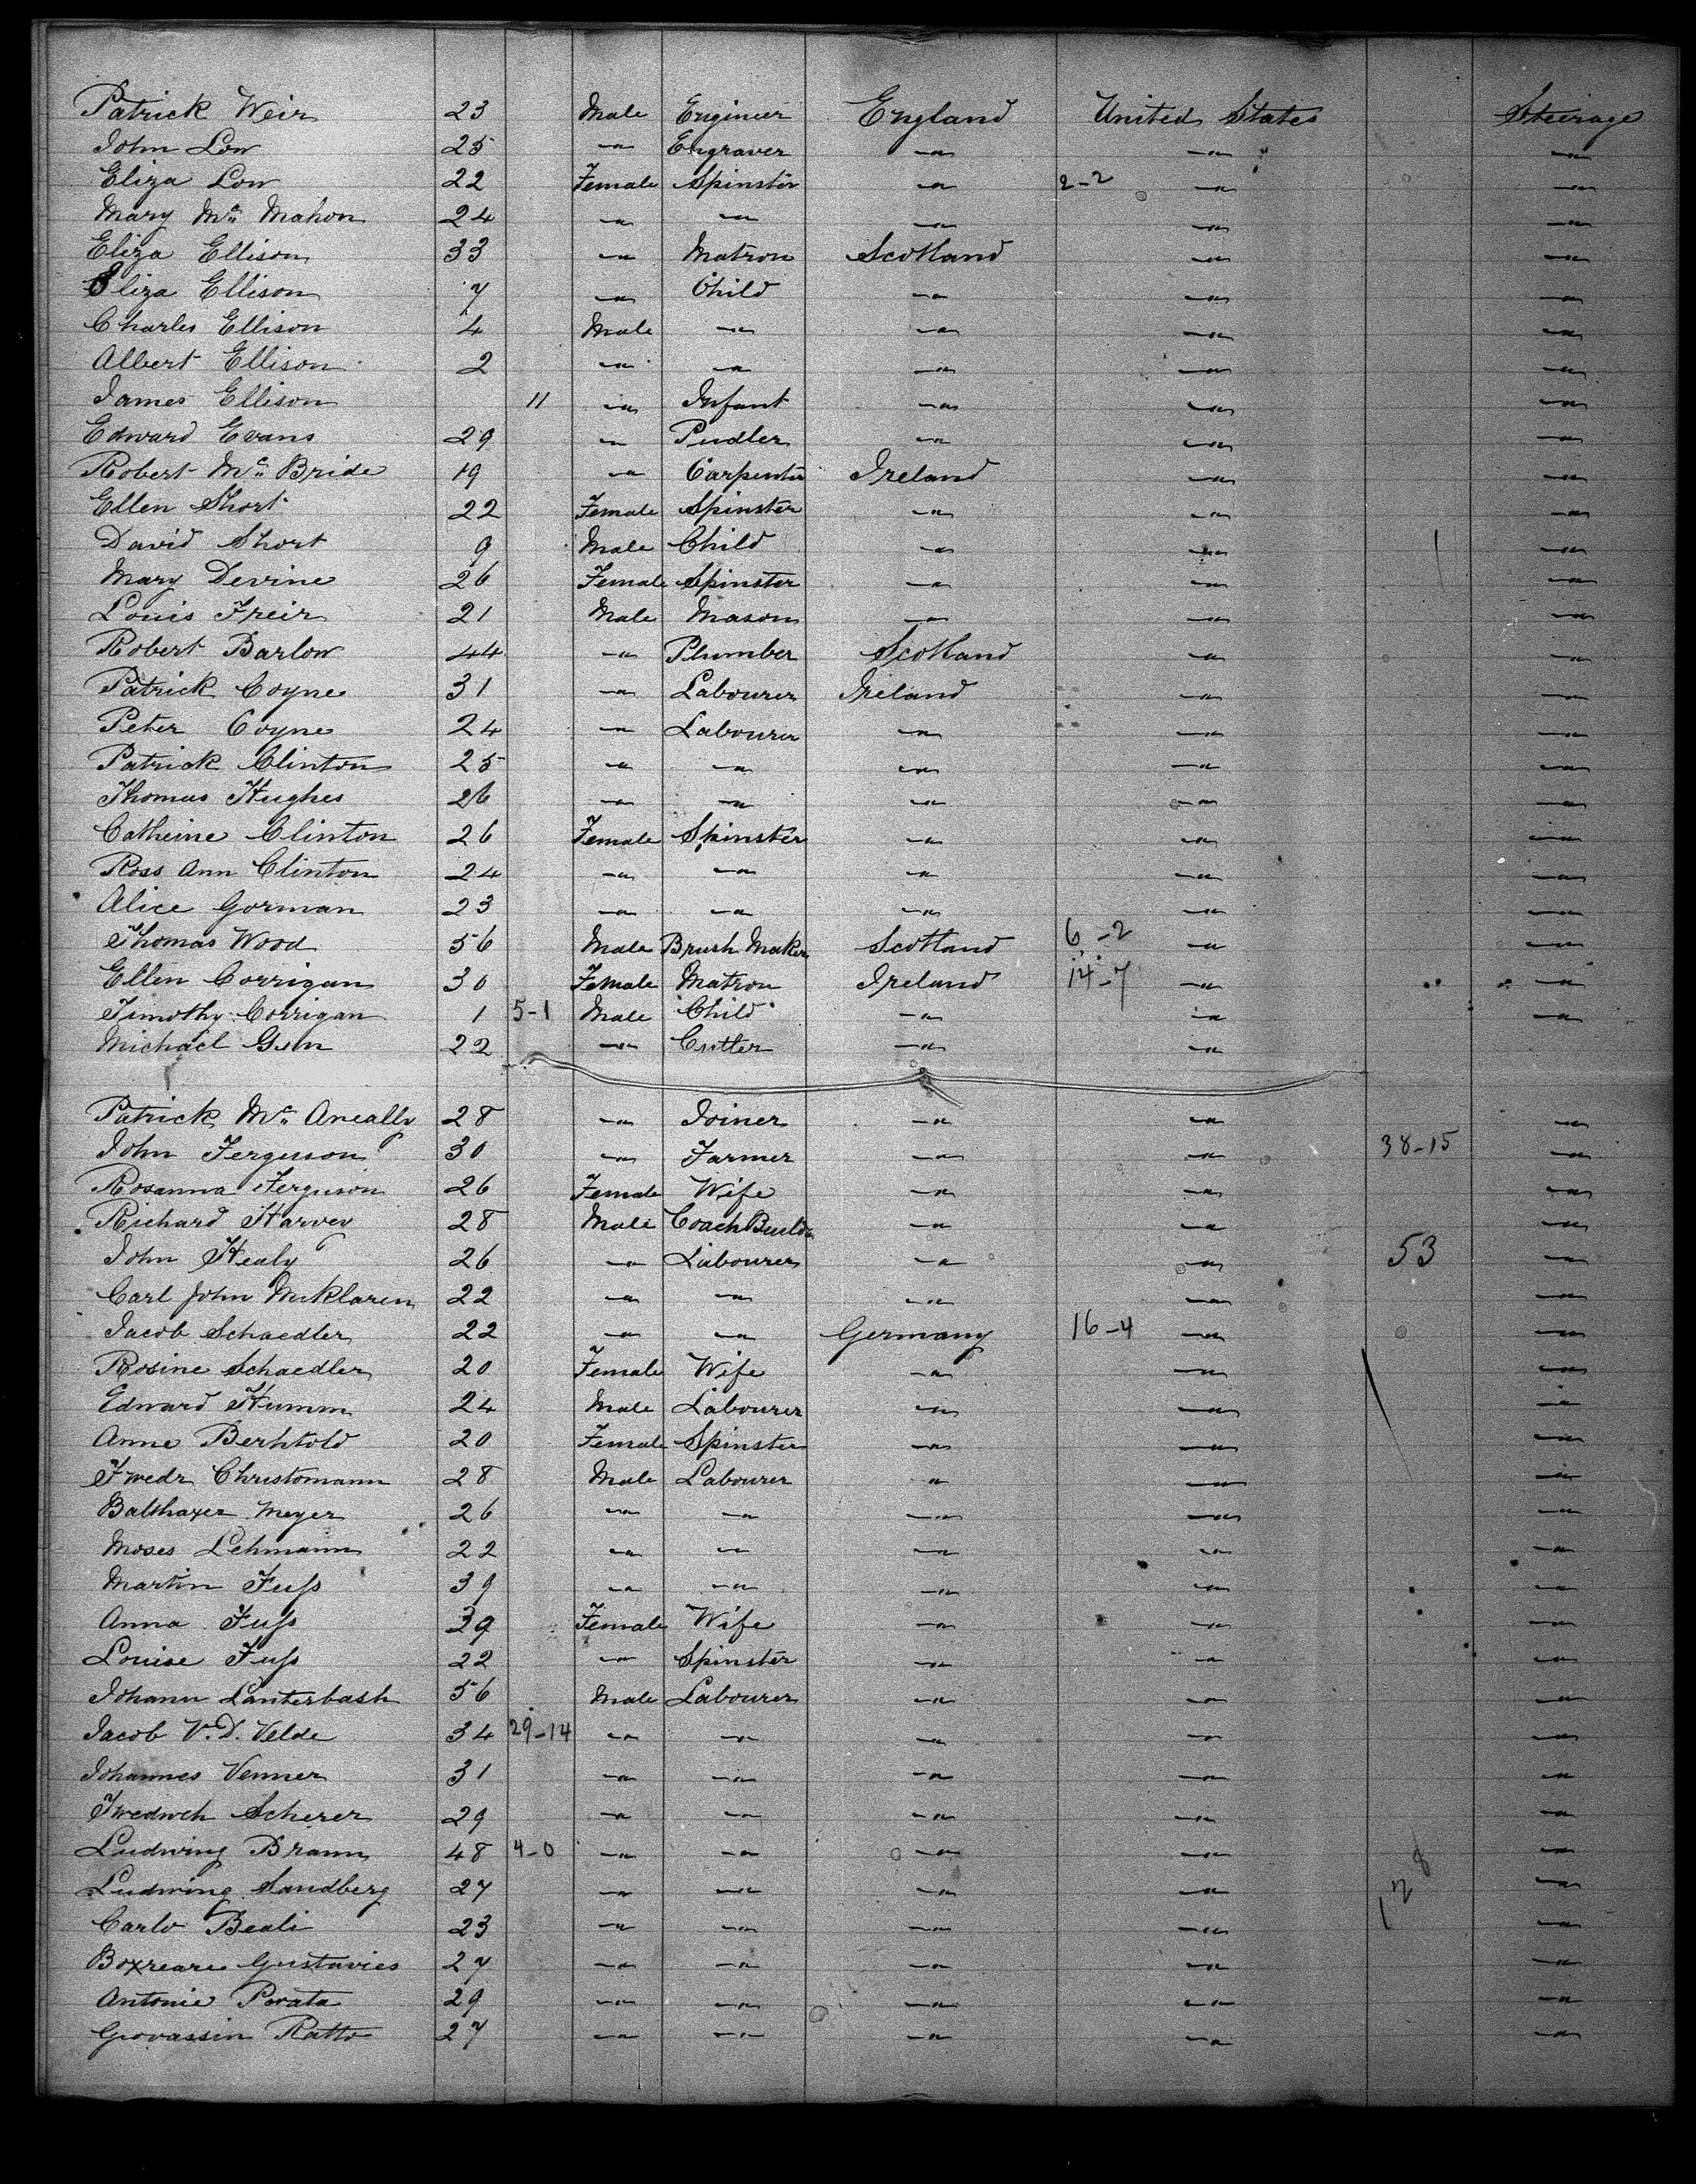 Patrick Weir 23 Male Engineer England United States Steirage
John Low 25 -"- Engraver -"- -"- -"-
Eliza Low 22 Female Spinster -"- 2-2 -"- -"-
Mary Mc Mahon 24 -"- -"- -"- -"- -"-
Eliza Ellison 33 -"- Matron Scotland -"- -"-
Eliza Ellison 7 -"- Child -"- -"- -"-
Charles Ellison 4 Male -"- -"- -"- -"-
Albert Ellison 2 -"- -"- -"- -"- -"-
James Ellison 11 -"- Infant -"- -"- -"-
Edward Evans 29 -"- Pudler -"- -"- -"-
Robert Mc Bride 19 -"- Carpenter Ireland -"- -"-
Ellen Short 22 Female Spinster -"- -"- -"-
David Short 9 Male Child -"- -"- -"-
Mary Devine 26 Female Spinster -"- -"- -"-
Louis Freir 21 Male Mason -"- -"- -"-
Robert Barlow 44 -"- Plumber Scotland -"- -"-
Patrick Coyne 31 -"- Labourer Ireland -"- -"-
Peter Coyne 24 -"- Labourer -"- -"- -"-
Patrick Clinton 25 -"- -"- -"- -"- -"-
Thomas Hughes 26 -"- -"- -"- -"- -"-
Catheine Clinton 26 Female Spinster -"- -"- -"-
Ross Ann Clinton 24 -"- -"- -"- -"- -"-
Alice Gorman 23 -"- -"- -"- -"- -"-
Thomas Wood 56 Male Brush Maker Scotland 6-2 -"- -"-
Ellen Corrigan 30 Female Matron Ireland 14-7 -"- -"-
Timothy Corrigan 1 5-1 Male Child -"- -"- -"-
Michael 22 -"- Cutter -"- -"-
Patrick Mc Aneally 28 -"- Joiner -"- -"- -"-
John Ferguson 30 -"- Farmer -"- -"- 38-15 -"-
Rosanna Ferguson 26 Female Wife -"- -"- -"-
Richard Harvey 28 Male Coach Builder -"- -"- -"-
John Healy 26 -"- Labourer -"- -"- 53 -"-
Carl John McKlaren 22 -"- -"- -"- -"- -"-
Jacob Schaedler 22 -"- -"- Germany 16-4 -"- -"-
Rosine Schaedler 20 Female Wife -"- -"- -"-
Edward Humm 24 Male Labourer -"- -"- -"-
Anne Berhtold 20 Female Spinster -"- -"- -"-
Fwedr Christomann 28 Male Labourer -"- -"- -"-
Balthaxer Meyer 26 -"- -"- -"- -"- -"-
Moses Lehmann 22 -"- -"- -"- -"- -"-
Martin Fuss 39 -"- -"- -"- -"- -"-
Anna Fuss 39 Female Wife -"- -"- -"-
Louise Fuss 22 -"- Spinster -"- -"- -"-
Johann Lanterbash 56 Male Labourer -"- -"- -"-
Jacob V.D. Velde 34 29-14 -"- -"- -"- -"- -"-
Johannes Venner 31 -"- -"- -"- -"- -"-
Fwedweh Scherer 29 -"- -"- -"- -"- -"-
Ludwing Braun 48 4-0 -"- -"- -"- -"- -"-
Ludwing Sandberg 27 -"- -"- -"- -"- 128 -"-
Carlo Beali 23 -"- -"- -"- -"- -"-
Boxreare Gustavies 27 -"- -"- -"- -"- -"-
Antonie Porata 29 -"- -"- -"- -"- -"-
Giovassin Ratto 27 -"- -"- -"- -"- -"-